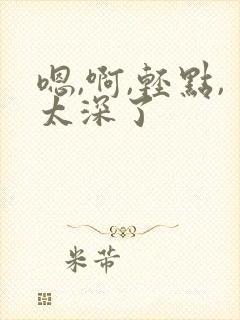 嗯,啊,輕點,
太深了
米芾